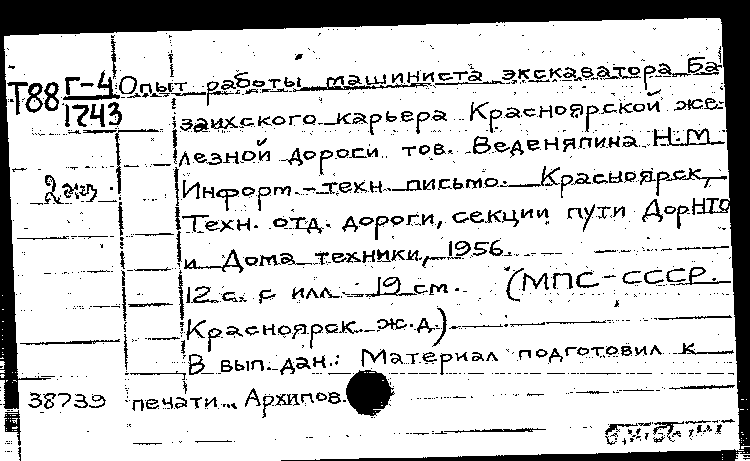 Т88 Г-4 Опыт работы машиниста экскаватора Ба-
1743 заихского карьера Красноярской же-
лезной дороги тов. Веденяпина Н.М.
2 экз. Информ.-техн. письмо. Красноярск,
Техн. отд. дороги, секции пути ДорНТО
и Дома техники, 1956.
12 с. с илл. 19 см. (МПС-СССР.
Красноярск. ж.д.).
В вып. дан.: Материал подготовил к
38739 печати... Архипов.